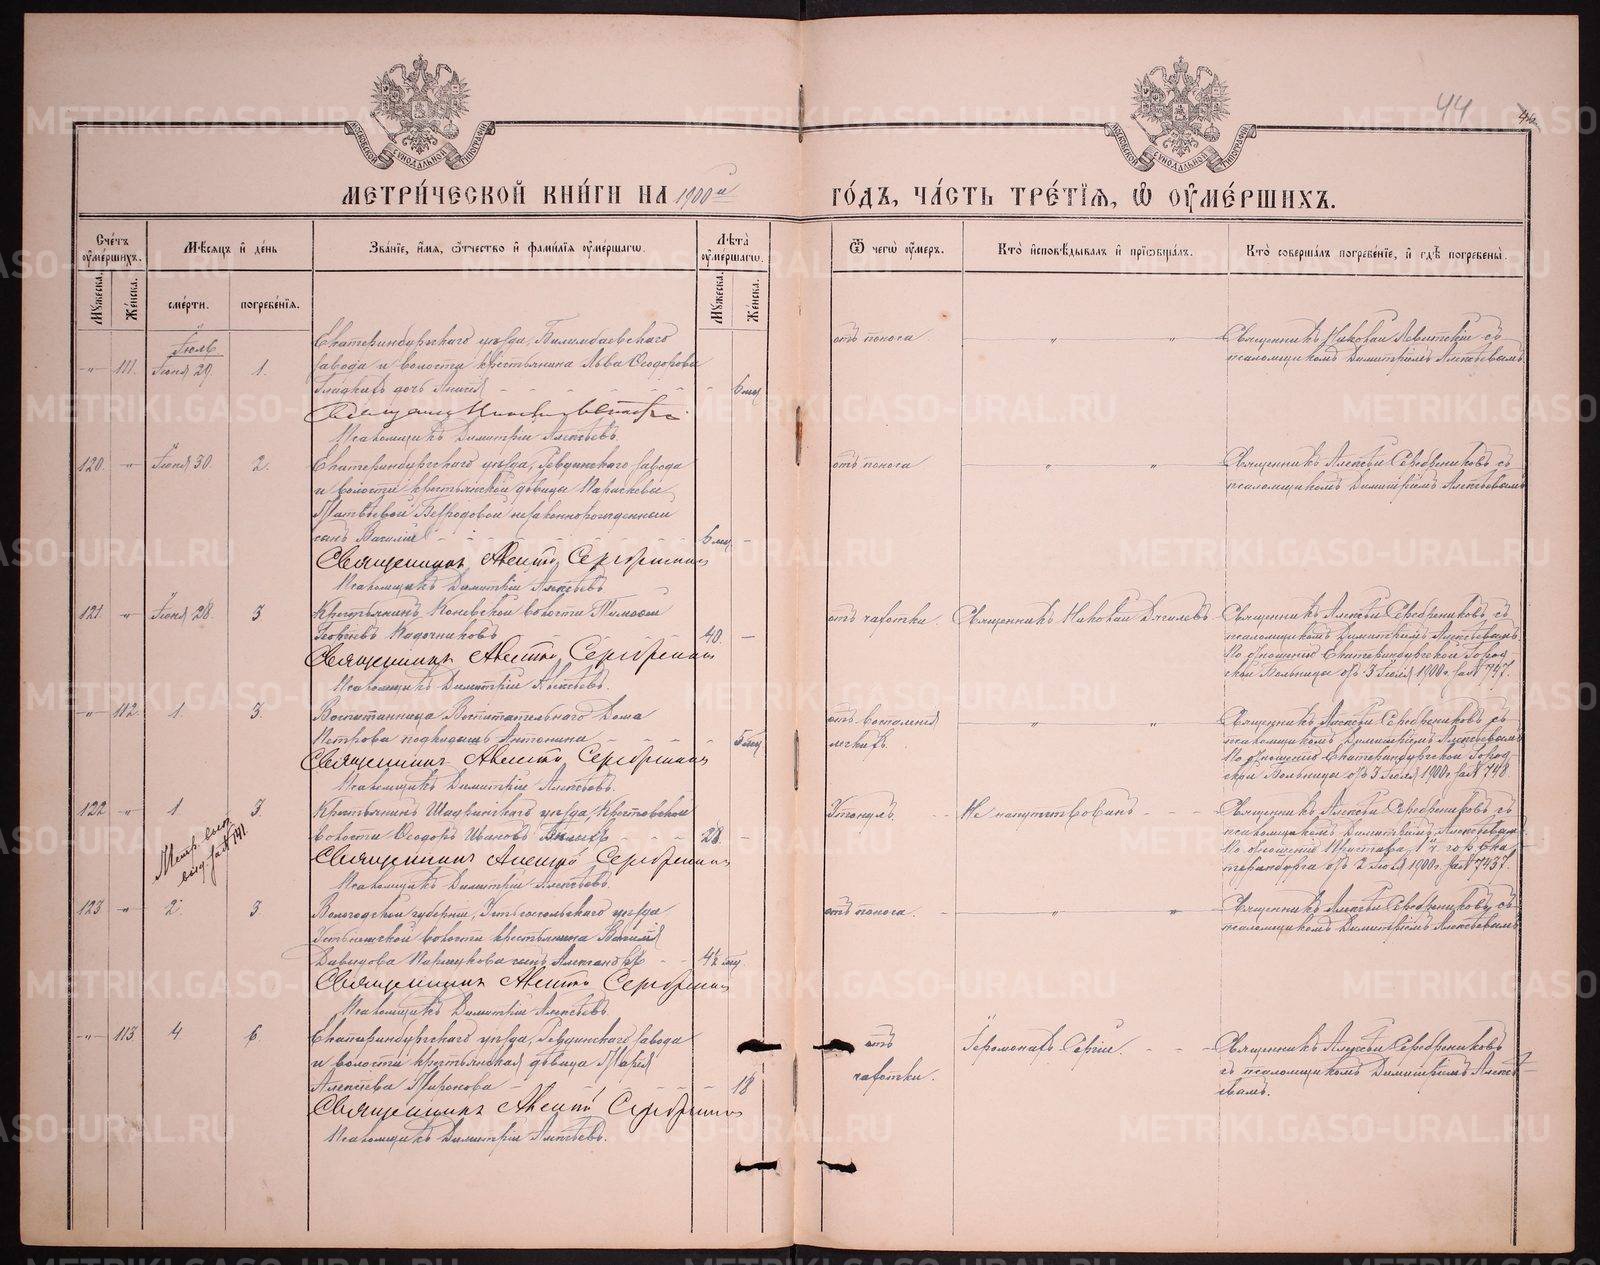 44
МОСКОВСКОЙ СѴНОДАЛЬНОЙ ТИПОГРАФІИ
МОСКОВСКОЙ СѴНОДАЛЬНОЙ ТИПОГРАФІИ
МЕТРИ́ЧЕСКОЙ КНИ́ГИ НА 1900й ГО́ДЪ, ЧА́СТЬ ТРЕ́ТІѦ, Ѡ ОУ҆МЕ́РШИХЪ.
Сче́тъ оу҆ме́ршихъ. Мѣ́сяцъ и҆ де́нь Зва́ніе, и҆́мя, ѻ҆́тчество и҆ фами́лія оу҆ме́ршагѡ. Лѣ́та оу҆ме́ршагѡ.
Ѿ чегѡ̀ оу҆́меръ. Кто̀ и҆сповѣ́дывалъ и҆ прїѡбща́лъ. Кто̀ соверша́лъ погребе́нїе, и҆ гдѣ̀ погребены̀.
Му́жеска. Же́нска. сме́рти. погребе́нія. Му́жеска. Же́нска.
Іюль
Екатеринбургскаго уѣзда, Билимбаевскаго
111. Іюня 29 1. завода и волости крестьянина Льва Ѳеодорова
дочь 6 мц
Псаломщикъ Димитрій Алексѣевъ.
отъ поноса
Священникъ Николай Левитскій съ
псаломщикомъ Димитріемъ Алексѣевымъ
120. Іюня 30. 2. Екатеринбургскаго уѣзда, Ревдинскаго завода
и волости крестьянской дѣвицы Параскевы
Матвѣевой незаконнорожденный
сынъ Василій 6 мц
Священникъ Алексій Серебрениковъ
Псаломщикъ Димитрій Алексѣевъ
отъ поноса
Священникъ Алексѣй Серебрениковъ съ
псаломщикомъ Димитріемъ Алексѣевымъ
121. Іюня 28. 3 Крестьянинъ Коневской волости Тимоѳей
Георгіевъ 40.
Священникъ Алексій Серебрениковъ
Псаломщикъ Димитрій Алексѣевъ.
отъ чахотки. Священникъ Николай Дягилевъ
Священникъ Алексѣй Серебрениковъ съ
псаломщикомъ Димитріемъ Алексѣевымъ
По отношенію Екатеринбургской Город-
ской Больницы отъ 3 Іюля 1900 г. за № 747.
112. 1. 3. Воспитанница Воспитательнаго Дома
Петрова подкидышъ Антонина 5 мц
Священникъ Алексій Серебрениковъ
Псаломщикъ Димитрій Алексѣевъ.
отъ воспаленія
легкихъ.
Священникъ Алексѣй Серебрениковъ съ
псаломщикомъ Димитріемъ Алексѣевымъ
По отношенію Екатеринбургской Город-
ской Больницы отъ 3 Іюля 1900 г. за № 748.
122 1 3. Крестьянинъ Шадринскаго уѣзда, Крестовской
волости Ѳеодоръ Ивановъ 28
Священникъ Алексій Серебрениковъ
Псаломщикъ Димитрій Алексѣевъ.
Утонулъ. Не напутствованъ
Священникъ Алексѣй Серебрениковъ съ
псаломщикомъ Димитріемъ Алексѣевымъ
По отношенію Пристава 1 ч. гор. Ека-
теринбурга отъ 2 Іюля 1900 г. за № 7437.
123 2 3 Вологодской губерніи, Устьсысольскаго уѣзда
волости крестьянина Василія
Давидова сынъ Александръ
Священникъ Алексій Серебрениковъ
Псаломщикъ Димитрій Алексѣевъ.
отъ поноса.
Священникъ Алексѣй Серебрениковъ съ
псаломщикомъ Димитріемъ Алексѣевымъ
113 4 6 Екатеринбургскаго уѣзда, Ревдинскаго завода
и волости крестьянская дѣвица Марія
Алексѣева Миронова 18
Священникъ Алексій Серебрениковъ
Псаломщикъ Димитрій Алексѣевъ.
отъ
чахотки.
Іеромонахъ Сергій.
Священникъ Алексѣй Серебрениковъ
съ псаломщикомъ Димитріемъ Алексѣ-
евымъ.
METRIKI.GASO-URAL.RU